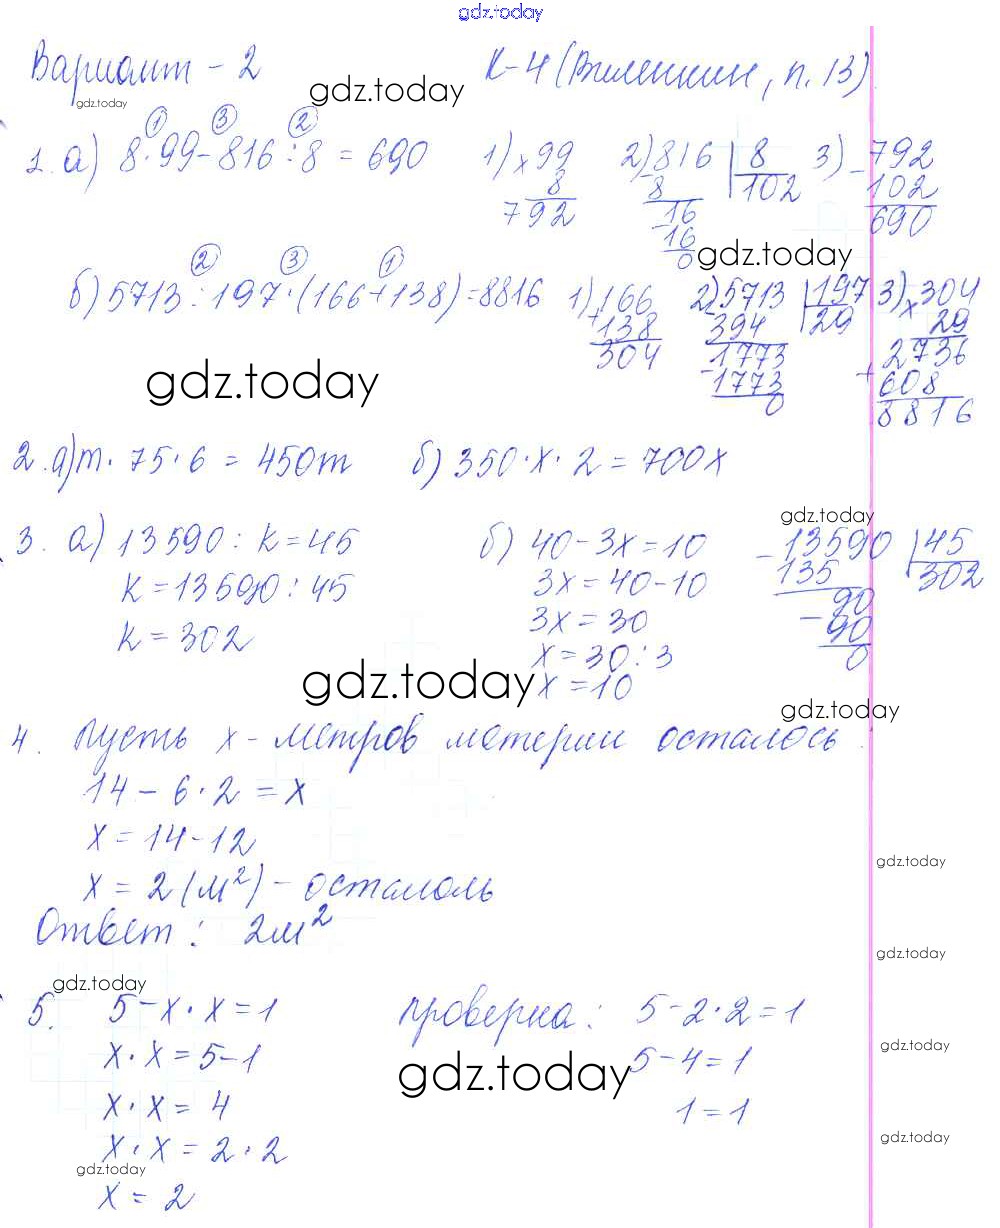 gdz.today
Вариант - 2 К-4 (Виленкин, п. 13)
gdz.today
gdz.today
① ③ ②
1. а) 8·99-816:8 = 690 1) ×99 2) 816 | 8 3) -792
8 8 102 102
792 -16 690
16
0 gdz.today
② ③ ①
б) 5713:197·(166+138)=8816 1) 166 2) 5713 | 197 3) ×304
+138 -394 29 29
304 1773 2736
gdz.today -1773 +608
0 8816
2. а) m·75·6 = 450m б) 350·x·2 = 700x
gdz.today
3. а) 13590 : k = 45 б) 40-3x=10 -13590 | 45
k = 13590 : 45 3x = 40-10 135 302
k = 302 3x = 30 90
-90
x = 30 : 3 0
gdz.today x = 10
gdz.today
4. Пусть x - метров материи осталось.
14 - 6·2 = x
x = 14-12
gdz.today
x = 2 (м²) - осталоль
Ответ: 2м²
gdz.today
gdz.today
5. 5-x·x=1 проверка: 5-2·2=1
gdz.today
x·x = 5-1 5-4=1
gdz.today
x·x = 4 1=1
gdz.today
x·x = 2·2
gdz.today
x = 2